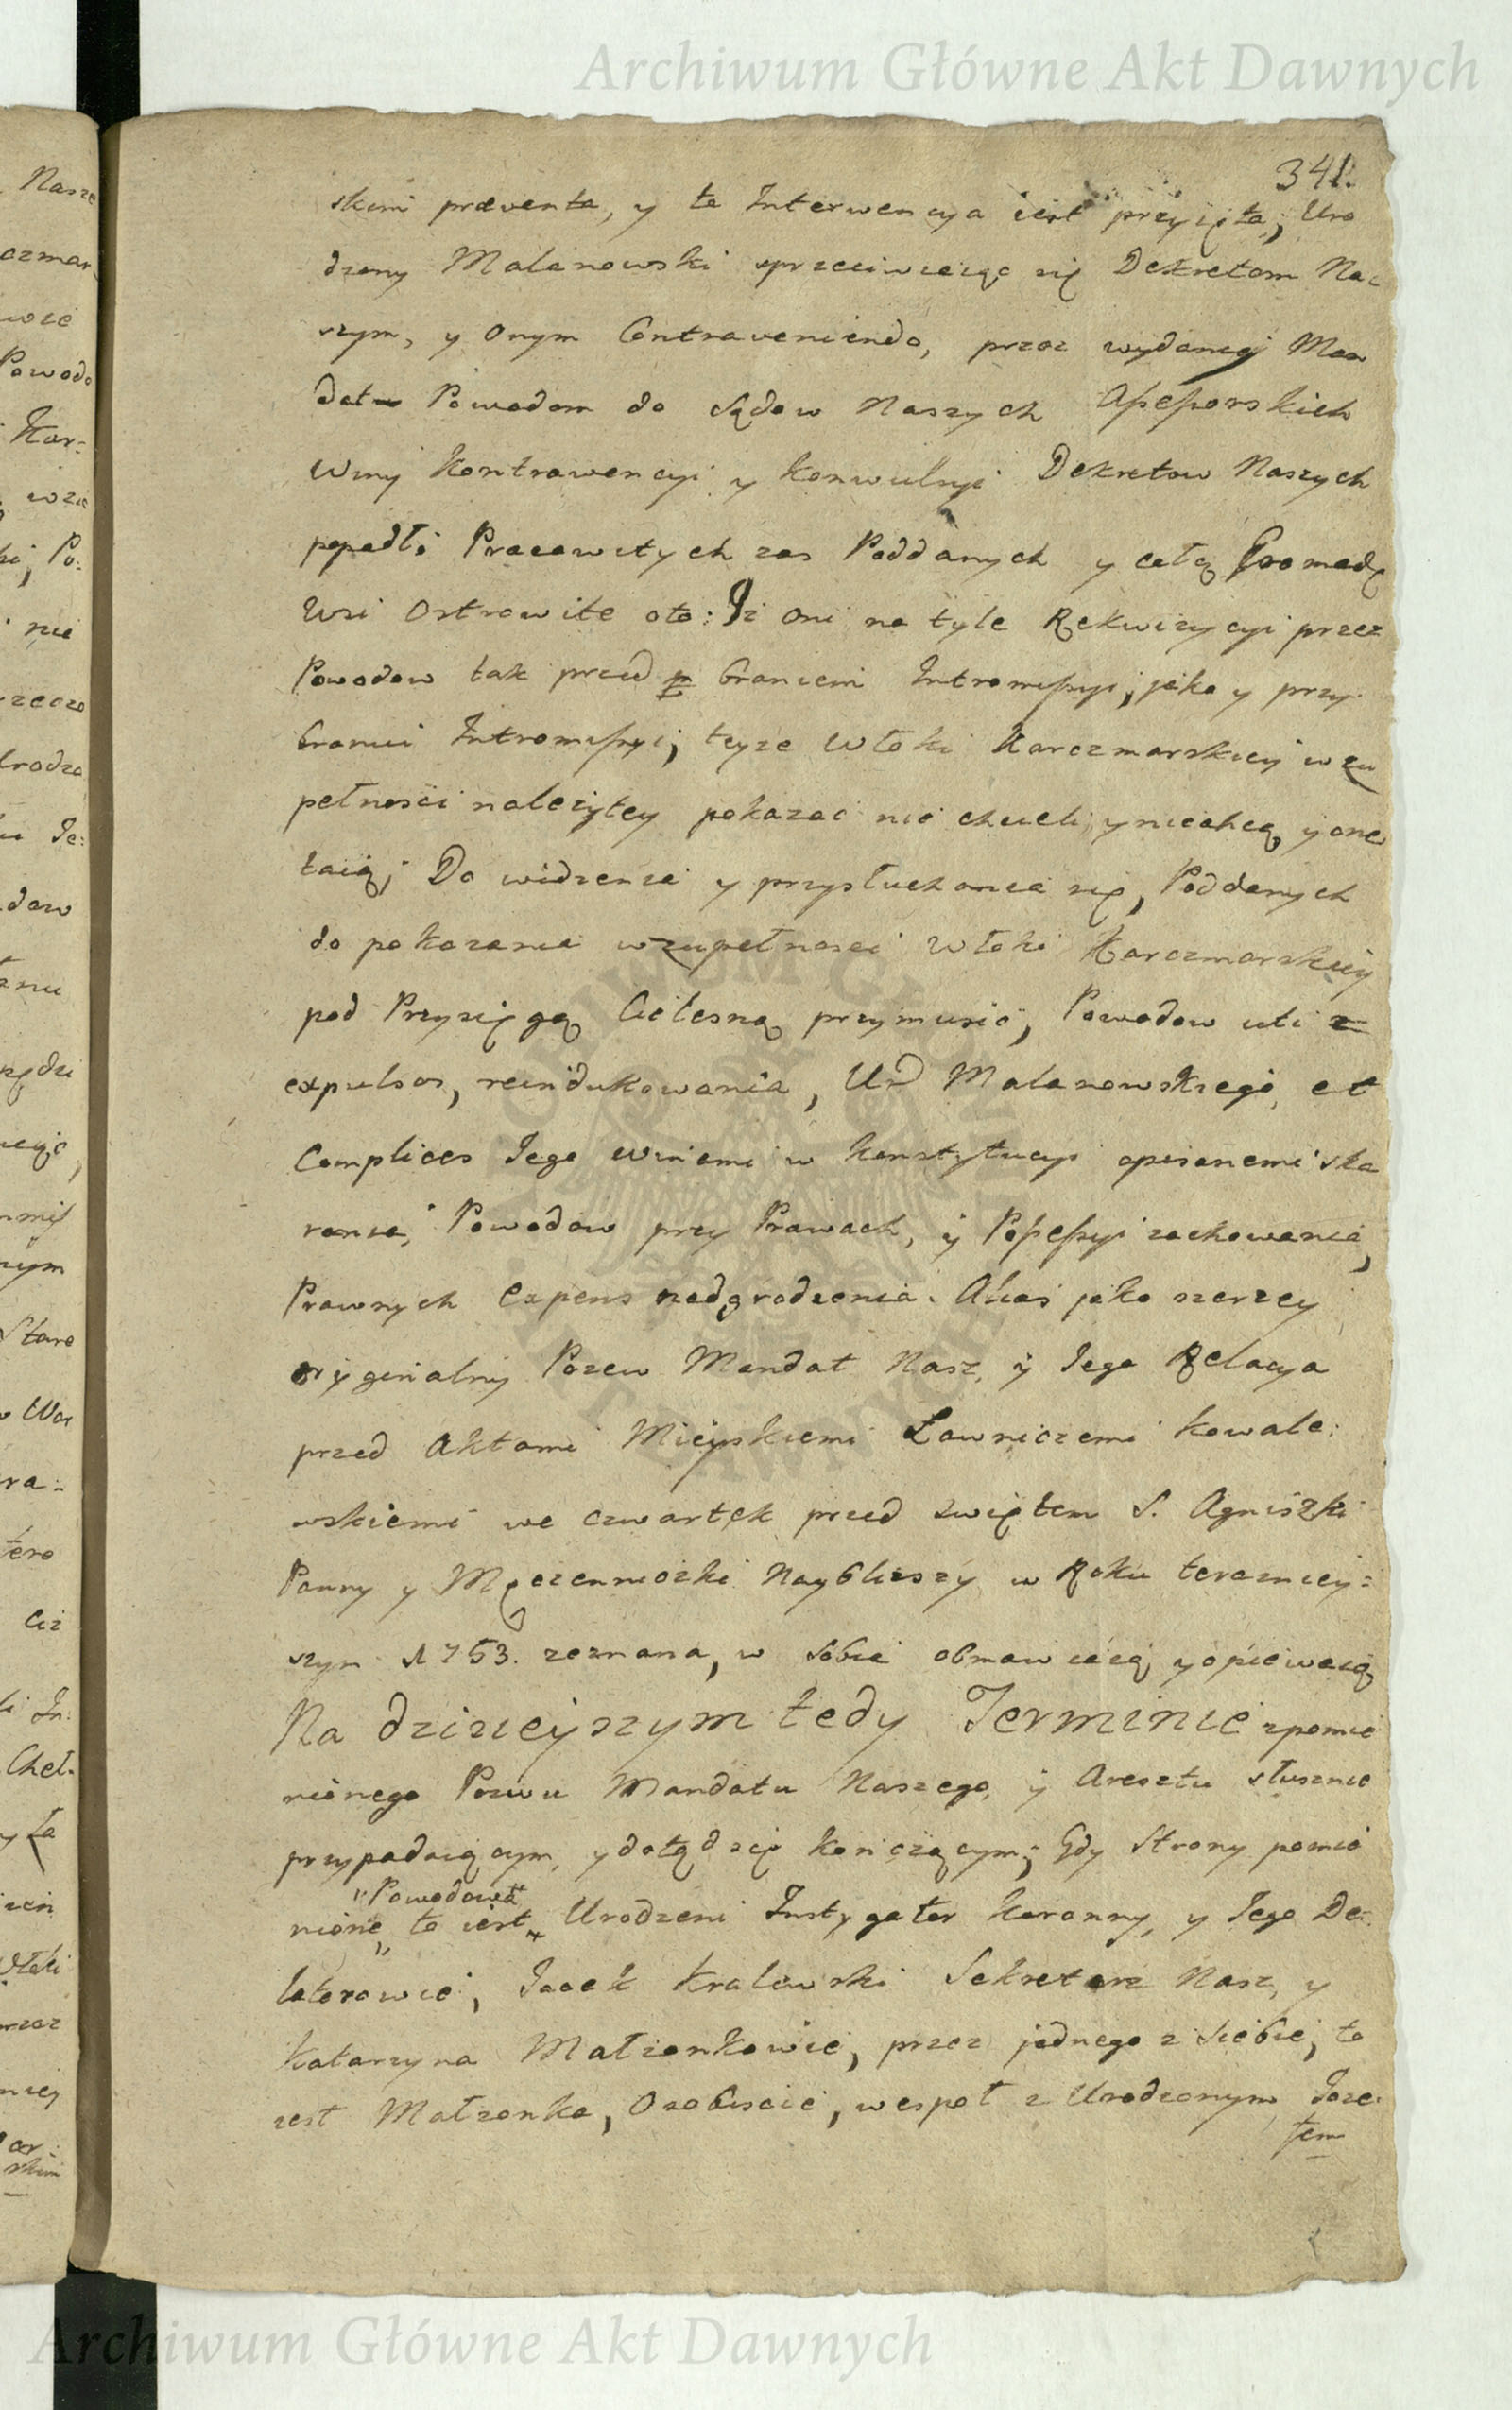 Archiwum Główne Akt Dawnych
341.
skimi præventa, y ta Interwencya iest przyięta; Uro
dzony Malanowski sprzeciwiaiąc się Dekretom Na-
szym, y onym Contraveniendo, przez wydanięj Man
dat Powodom do Sądow Naszych Assessorskich
Winy Kontrawencyi y konwulsyi Dekretow Naszych
popadłj Pracowitych zas Poddanych y całą Gromadę
Wsi Ostrowite oto: Iz oni na tyle Rekwizycyi przez
Powodow tak przed braniem Intromissyi, jako y przy
braniu Intromissyi, teyze Włoki Karczmarskiey w zu
pełnosci nalezytey pokazać nie chcieli, y niechcą, y one
taią; Do widzenia y przysłuchania się, Poddanych
do pokazania w zupełnosci Włoki Karczmarskiey
pod Przysięgą Cielesną przymusić, Powodow uti
expulsos, reindukowania, Ur Malanowskiego, et
Complices Iego winami w konstytucyi opisanemi ska
rania, Powodow przy Prawach, y Possessyi zachowania,
Prawnych Expens nadgrodzenia. Alias jako szerzey
oryginalny Pozew Mandat Nasz, y Iego Relacya
przed Aktami Mieyskiemi Ławniczemi Kowale:
wskiemi we czwartek przed swiętem S. Agniszki
Panny y Męczenniczki Naybliszy w Roku teraznìey:
szym 1753. zeznana, w sobie obmawiaią y opiewaią
Na dzisieyszym tedy Terminie zpomie
nionego Pozwu Mandatu Naszego, y Aresztu słusznie
przypadaiącym, y dotąd się kończącym; Gdy Strony pomie
"Powodowa"
nione to iest Urodzeni Instygator Koronny, y Iego De:
latorowie, Jacek Kralewski Sekretarz Nasz, y
Katarzyna Małzonkowie, przez jednego z siebie, to
iest Małzonka, Osobiscie, wespoł z Urodzonym Joze:
fem
Archiwum Główne Akt Dawnych